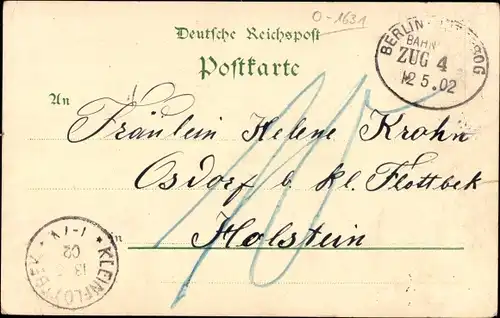 O-1631
Deutsche Reichspost
Postkarte
BERLIN
BAHN
ZUG 4
12 5.02
An
Fräulein Helene Krohn
Osdorf b. kl. Flottbek
Holstein
KLEINFLOTTBEK
02
1-1V